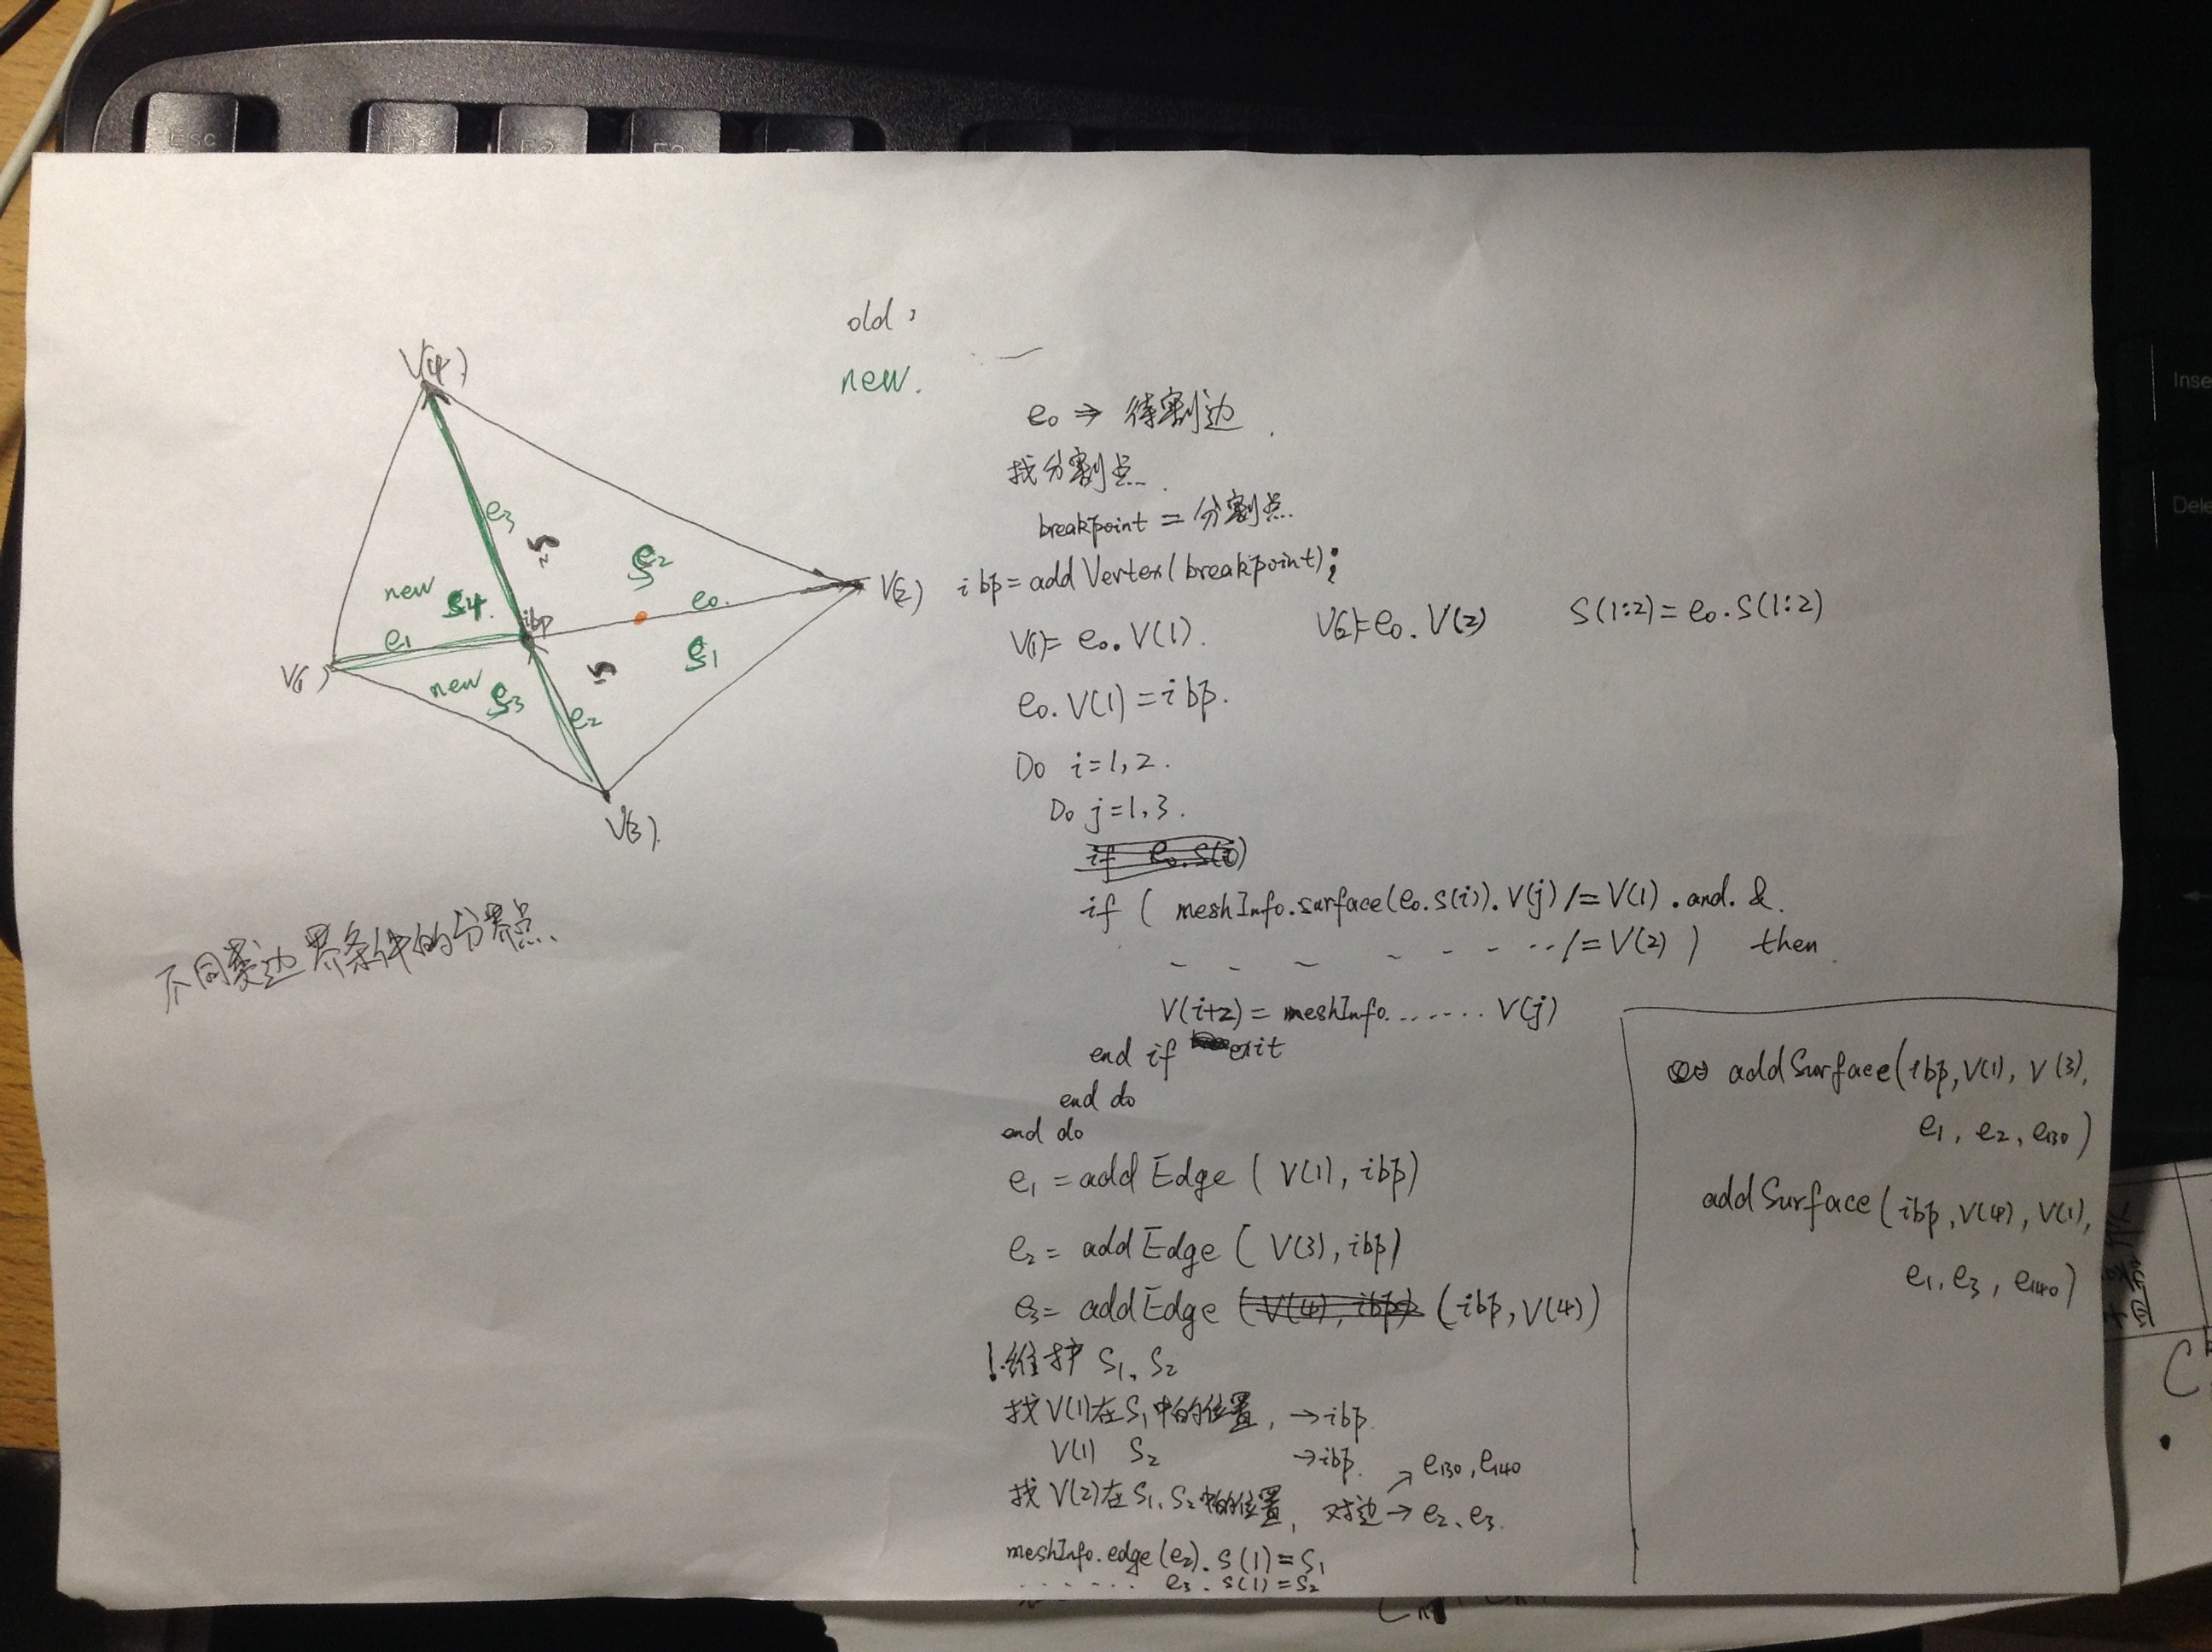 Esc
F1
F2
F3
Inse
Dele
old :
new.
V(4)
e3
S2
e0.
V(2)
new
S4.
ibp
e1
V(1)
new
S3
S1
e2
V(3).
不同类边界条件的分界点
e0 ⇒ 待割边.
找分割点.
breakpoint = 分割点.
ibp = addVertex(breakpoint);
V(1)= e0.V(1). V(2)=e0.V(2) S(1:2)=e0.S(1:2)
e0.V(1)=ibp.
Do i=1,2.
Do j=1,3.
if e0.S(i)
if ( meshInfo.surface(e0.s(i)).V(j) /= V(1) .and. &.
- - - - - - .. /= V(2) ) then
V(i+2) = meshInfo....... V(j)
end if exit
end do
end do
e1 = addEdge ( V(1), ibp)
e2 = addEdge ( V(3), ibp)
e3 = addEdge (V(4), ibp) (ibp, V(4))
!维护 S1、S2
找V(1)在S1中的位置, →ibp.
V(1) S2 →ibp.
↗ e130, e140
找V(2)在S1、S2中的位置, 对边→ e2、e3.
meshInfo.edge(e2).s(1)=S1
....... e3.s(1)=S2
addSurface(ibp, V(1), V(3),
e1, e2, e130)
addSurface(ibp, V(4), V(1),
e1, e3, e140)